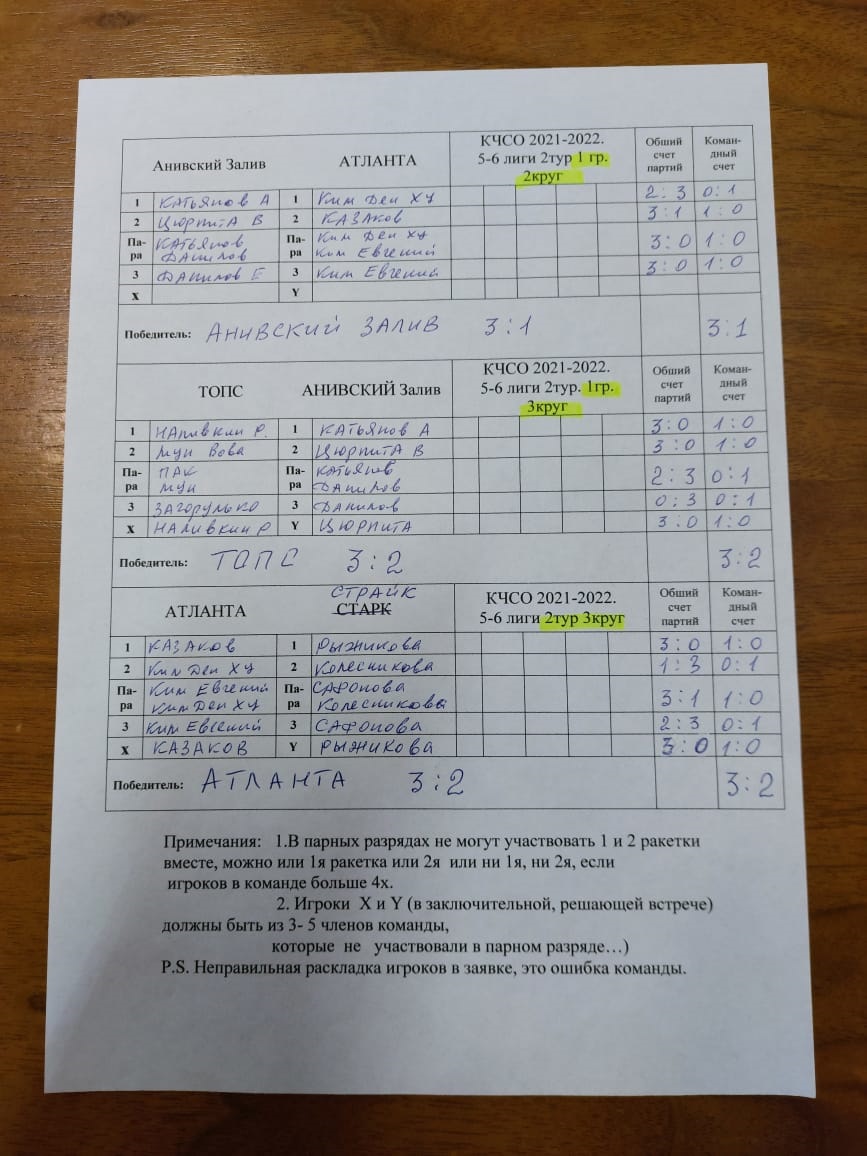 Анивский Залив АТЛАНТА КЧСО 2021-2022. 5-6 лиги 2тур 1 гр. 2круг Обший счет партий Коман-дный счет
1 КАТЬЯНОВ А 1 Ким Ден Ху 2:3 0:1
2 ЦЮРПИТА В 2 КАЗАКОВ 3:1 1:0
Па-ра КАТЬЯНОВ ДАНИЛОВ Па-ра Ким Ден Ху Ким Евгений 3:0 1:0
3 ДАНИЛОВ Е 3 Ким Евгений 3:0 1:0
X Y
Победитель: АНИВСКИЙ ЗАЛИВ 3:1 3:1
ТОПС АНИВСКИЙ Залив КЧСО 2021-2022. 5-6 лиги 2тур. 1гр. 3круг Обший счет партий Коман-дный счет
1 НАливкин Р. 1 КАТЬЯНОВ А 3:0 1:0
2 Мун Вова 2 ЦЮРПИТА В 3:0 1:0
Па-ра ПАК МУН Па-ра КАТЬЯНОВ ДАНИЛОВ 2:3 0:1
3 ЗАГОРУЛЬКО 3 ДАНИЛОВ 0:3 0:1
X НАЛИВКИН Р Y ЦЮРПИТА 3:0 1:0
Победитель: ТОПС 3:2 3:2
АТЛАНТА СТРАЙК СТАРК КЧСО 2021-2022. 5-6 лиги 2тур 3круг Обший счет партий Коман-дный счет
1 КАЗАКОВ 1 РЫЖИКОВА 3:0 1:0
2 Ким Ден Ху 2 Колесникова 1:3 0:1
Па-ра Ким Евгений Ким Ден Ху Па-ра САФОНОВА Колесникова 3:1 1:0
3 Ким Евгений 3 САФОНОВА 2:3 0:1
X КАЗАКОВ Y РЫЖИКОВА 3:0 1:0
Победитель: АТЛАНТА 3:2 3:2
Примечания: 1.В парных разрядах не могут участвовать 1 и 2 ракетки
вместе, можно или 1я ракетка или 2я или ни 1я, ни 2я, если
игроков в команде больше 4х.
2. Игроки X и Y (в заключительной, решающей встрече)
должны быть из 3- 5 членов команды,
которые не участвовали в парном разряде…)
P.S. Неправильная раскладка игроков в заявке, это ошибка команды.